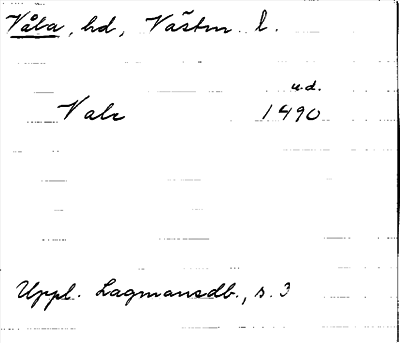 Våla, hd, Västm. l.
u.d.
Vale 1490
Uppl. Lagmansdb., s. 3